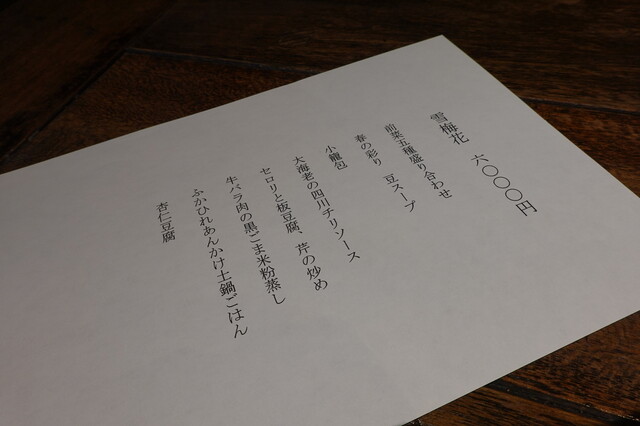 雪梅花　六〇〇〇円
前菜五種盛り合わせ
春の彩り　豆スープ
小籠包
大海老の四川チリソース
セロリと板豆腐、芹の炒め
牛バラ肉の黒ごま米粉蒸し
ふかひれあんかけ土鍋ごはん
杏仁豆腐